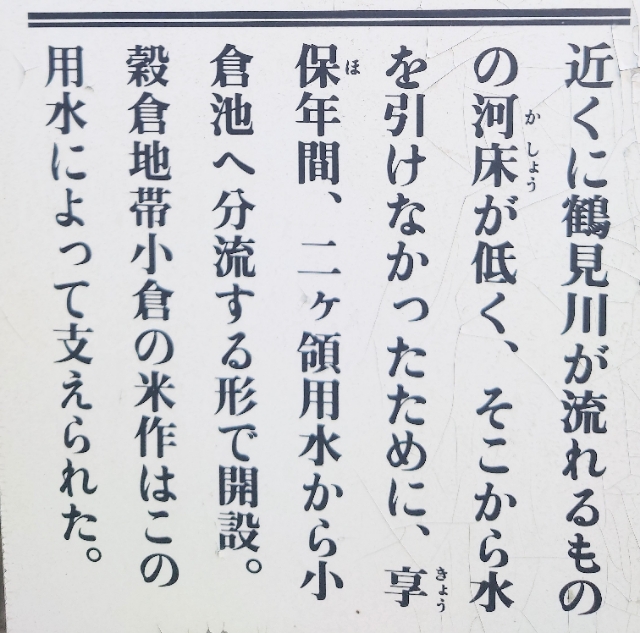 近くに鶴見川が流れるもの
の河床が低く、そこから水
を引けなかったために、享
保年間、二ヶ領用水から小
倉池へ分流する形で開設。
穀倉地帯小倉の米作はこの
用水によって支えられた。
かしょう
きょう
ほ